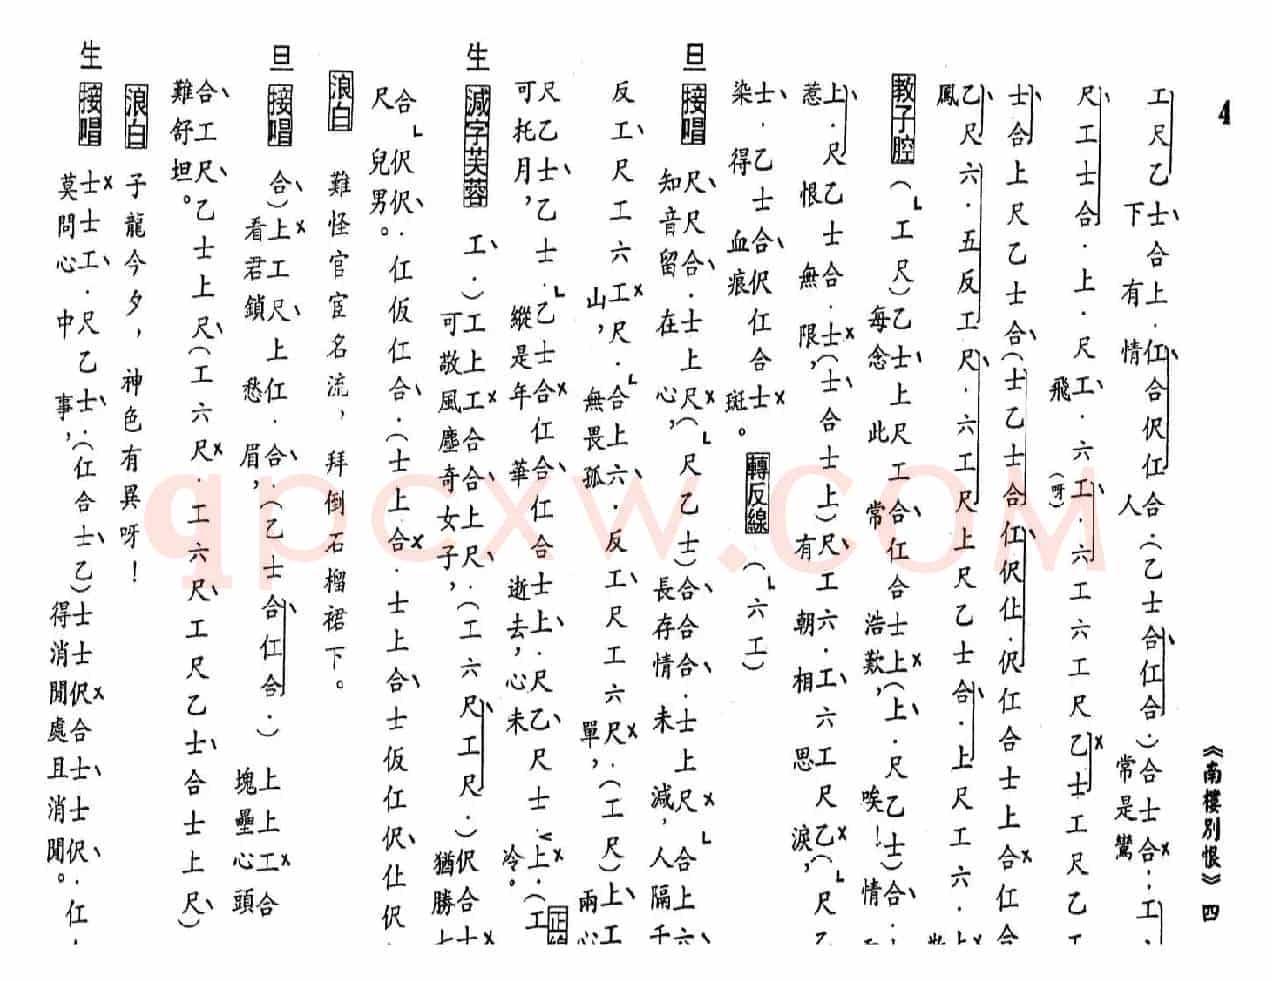 4
《南樓別恨》四
工尺乙士合上.仜合伬仜合.(乙士合仜合.)合士合.工
下有情人常是鸞
尺工士合.上.尺工.六工.六工六工尺乙士工尺乙
飛(呀)
士合上尺乙士合(士乙士合仜伬仩.伬仜合士上合仜合
乙尺六.五反工尺.六工尺上尺乙士合.上尺工六.上
鳳
教子腔 (工尺)乙士上尺工合仜合士上(上.尺乙士)合.
每念此常浩歎,唉!情
上.尺乙士合.士(士合士上)尺工六.工六工尺乙(尺乙
惹恨無限,有朝相思淚,
士.乙士合伬仜合士 轉反線 (六工)
染得血痕斑。
旦 接唱 尺尺合.士上尺(尺乙士)合合合.士上尺合上六
知音留在心,長存情未減,人隔千
反工尺工六工尺.合上六.反工尺工六尺.(工尺)上工
山,無畏孤單,兩心
尺乙士乙士.乙士合仜合仜合士上.尺乙尺士上.(工
可托月,縱是年華逝去,心未冷。
生 減字芙蓉 工.)工上工合合上尺.(工六尺工尺.)伬合士
可敬風塵奇女子,猶勝
合伬伬.仜仮仜合.(士上合.士上合士仮仜伬仩伬
尺兒男。
浪白 難怪官宦名流,拜倒石榴裙下。
旦 接唱 合)上工尺上仜.合.(乙士合仜合.)上上工合
看君鎖愁眉,塊壘心頭
合工尺乙士上尺(工六尺.工六尺工尺乙士合士上尺)
難舒坦。
浪白 子龍今夕,神色有異呀!
生 接唱 士士工.尺乙士.(仜合士乙)士士伬合士士伬.仜.
莫問心中事,得消閒處且消閒。
qpcxw.com